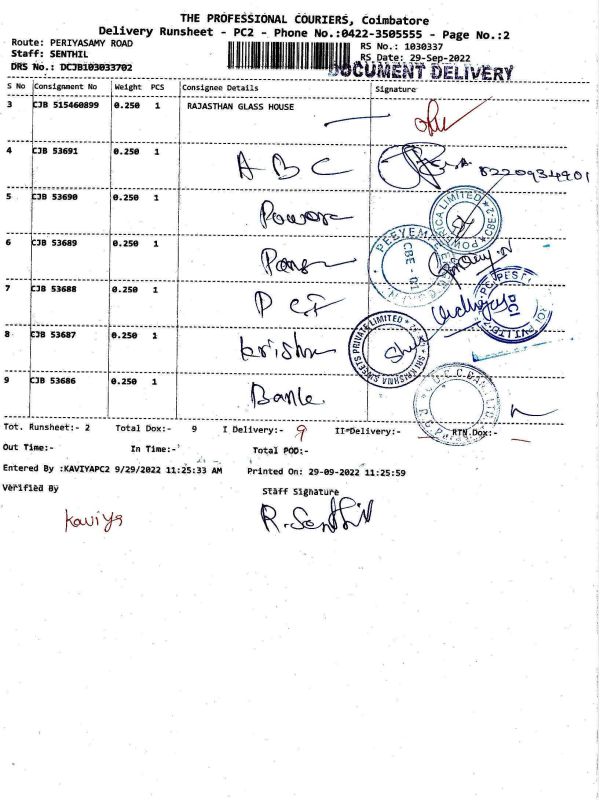 THE PROFESSIONAL COURIERS, Coimbatore
Delivery Runsheet - PC2 - Phone No.:0422-3505555 - Page No.:2
Route: PERIYASAMY ROAD
RS No.: 1030337
Staff: SENTHIL
RS Date: 29-Sep-2022
DRS No.: DCJB103033702
DOCUMENT DELIVERY
S No Consignment No Weight PCS Consignee Details Signature
3 CJB 515460899 0.250 1 RAJASTHAN GLASS HOUSE
4 CJB 53691 0.250 1 A B C 8220934901
5 CJB 53690 0.250 1
6 CJB 53689 0.250 1
PEEYEM
CBE
7 CJB 53688 0.250 1
8 CJB 53687 0.250 1 Krishna
SRI KRISHNA SWEETS PRIVATE LIMITED
9 CJB 53686 0.250 1 Bank
Tot. Runsheet:- 2 Total Dox:- 9 I Delivery:- 9 II-Delivery:- RTN.Dox:-
Out Time:- In Time:- Total POD:-
Entered By :KAVIYAPC2 9/29/2022 11:25:33 AM Printed On: 29-09-2022 11:25:59
Verified By Staff Signature
Kaviya R. Senthil